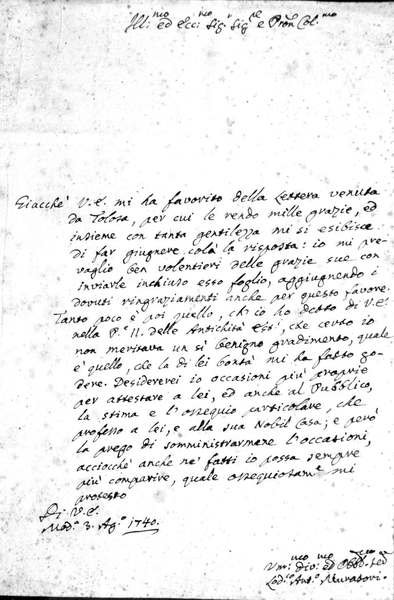 Ill:mo ed Ecc:mo Sig:r Sig:r e Pron Col:mo
Giacché V.E. mi ha favorito della Lettera venuta
da Tolosa, per cui le rendo mille grazie, ed
insieme con tanta gentilezza mi si esibisce
di far giugnere colà la risposta: io mi pre-
vaglio ben volentieri delle grazie sue con
inviarle inchiuso esso foglio, aggiugnendo i
dovuti ringraziamenti anche per questo favore.
Tanto poco è poi quello, ch'io ho detto di V.E.
nella P. II. delle Antichità Est., che certo io
non meritava un sì benigno gradimento, quale
è quello, che la di lei bontà mi ha fatto go-
dere. Desidererei io occasioni più proprie
per attestare a lei, ed anche al Pubblico,
la stima e l'ossequio particolare, che
professo a lei, e alla sua Nobil Casa; e però
la prego di somministrarmene l'occasioni,
acciocché anche ne' fatti io possa sempre
più comparire, quale ossequiosam.e mi
protesto
Di V.E.
Mod.a 3. Ag.o 1740.
Um:mo div:mo ed Obbl. Ser
Lod.o Ant.o Muratori.